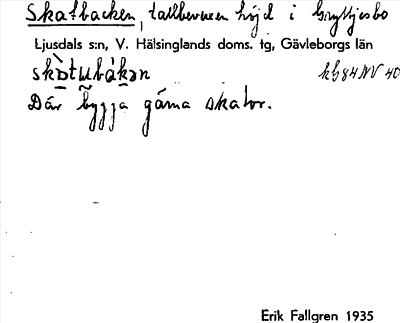 Skatbacken, tallbevuxen höjd i Gryttjesbo
Ljusdals s:n, V. Hälsinglands doms. tg, Gävleborgs län
skὸtubàkən
Där bygga gärna skator.
Erik Fallgren 1935